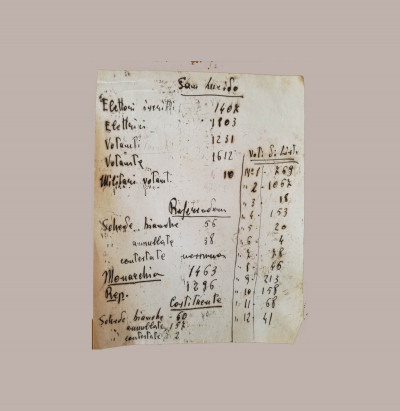 San Lucido
Elettori iscritti 1407
Elettrici 1803
Votanti 1231
Votante 1612
Militari votanti 10
Referendum
Schede bianche 56
" annullate 38
contestate nessuna
Monarchia 1463
Rep. 1296
Costituente
Schede bianche - 60
" annullate 157
" contestate 2
Voti di Lista
N° 1 - 769
" 2 - 1067
" 3 18
" 4 153
" 5 20
" 6 - 4
" 7 - 78
" 8 - 46
" 9 - 213
" 10 - 158
" 11 - 68
" 12 - 41